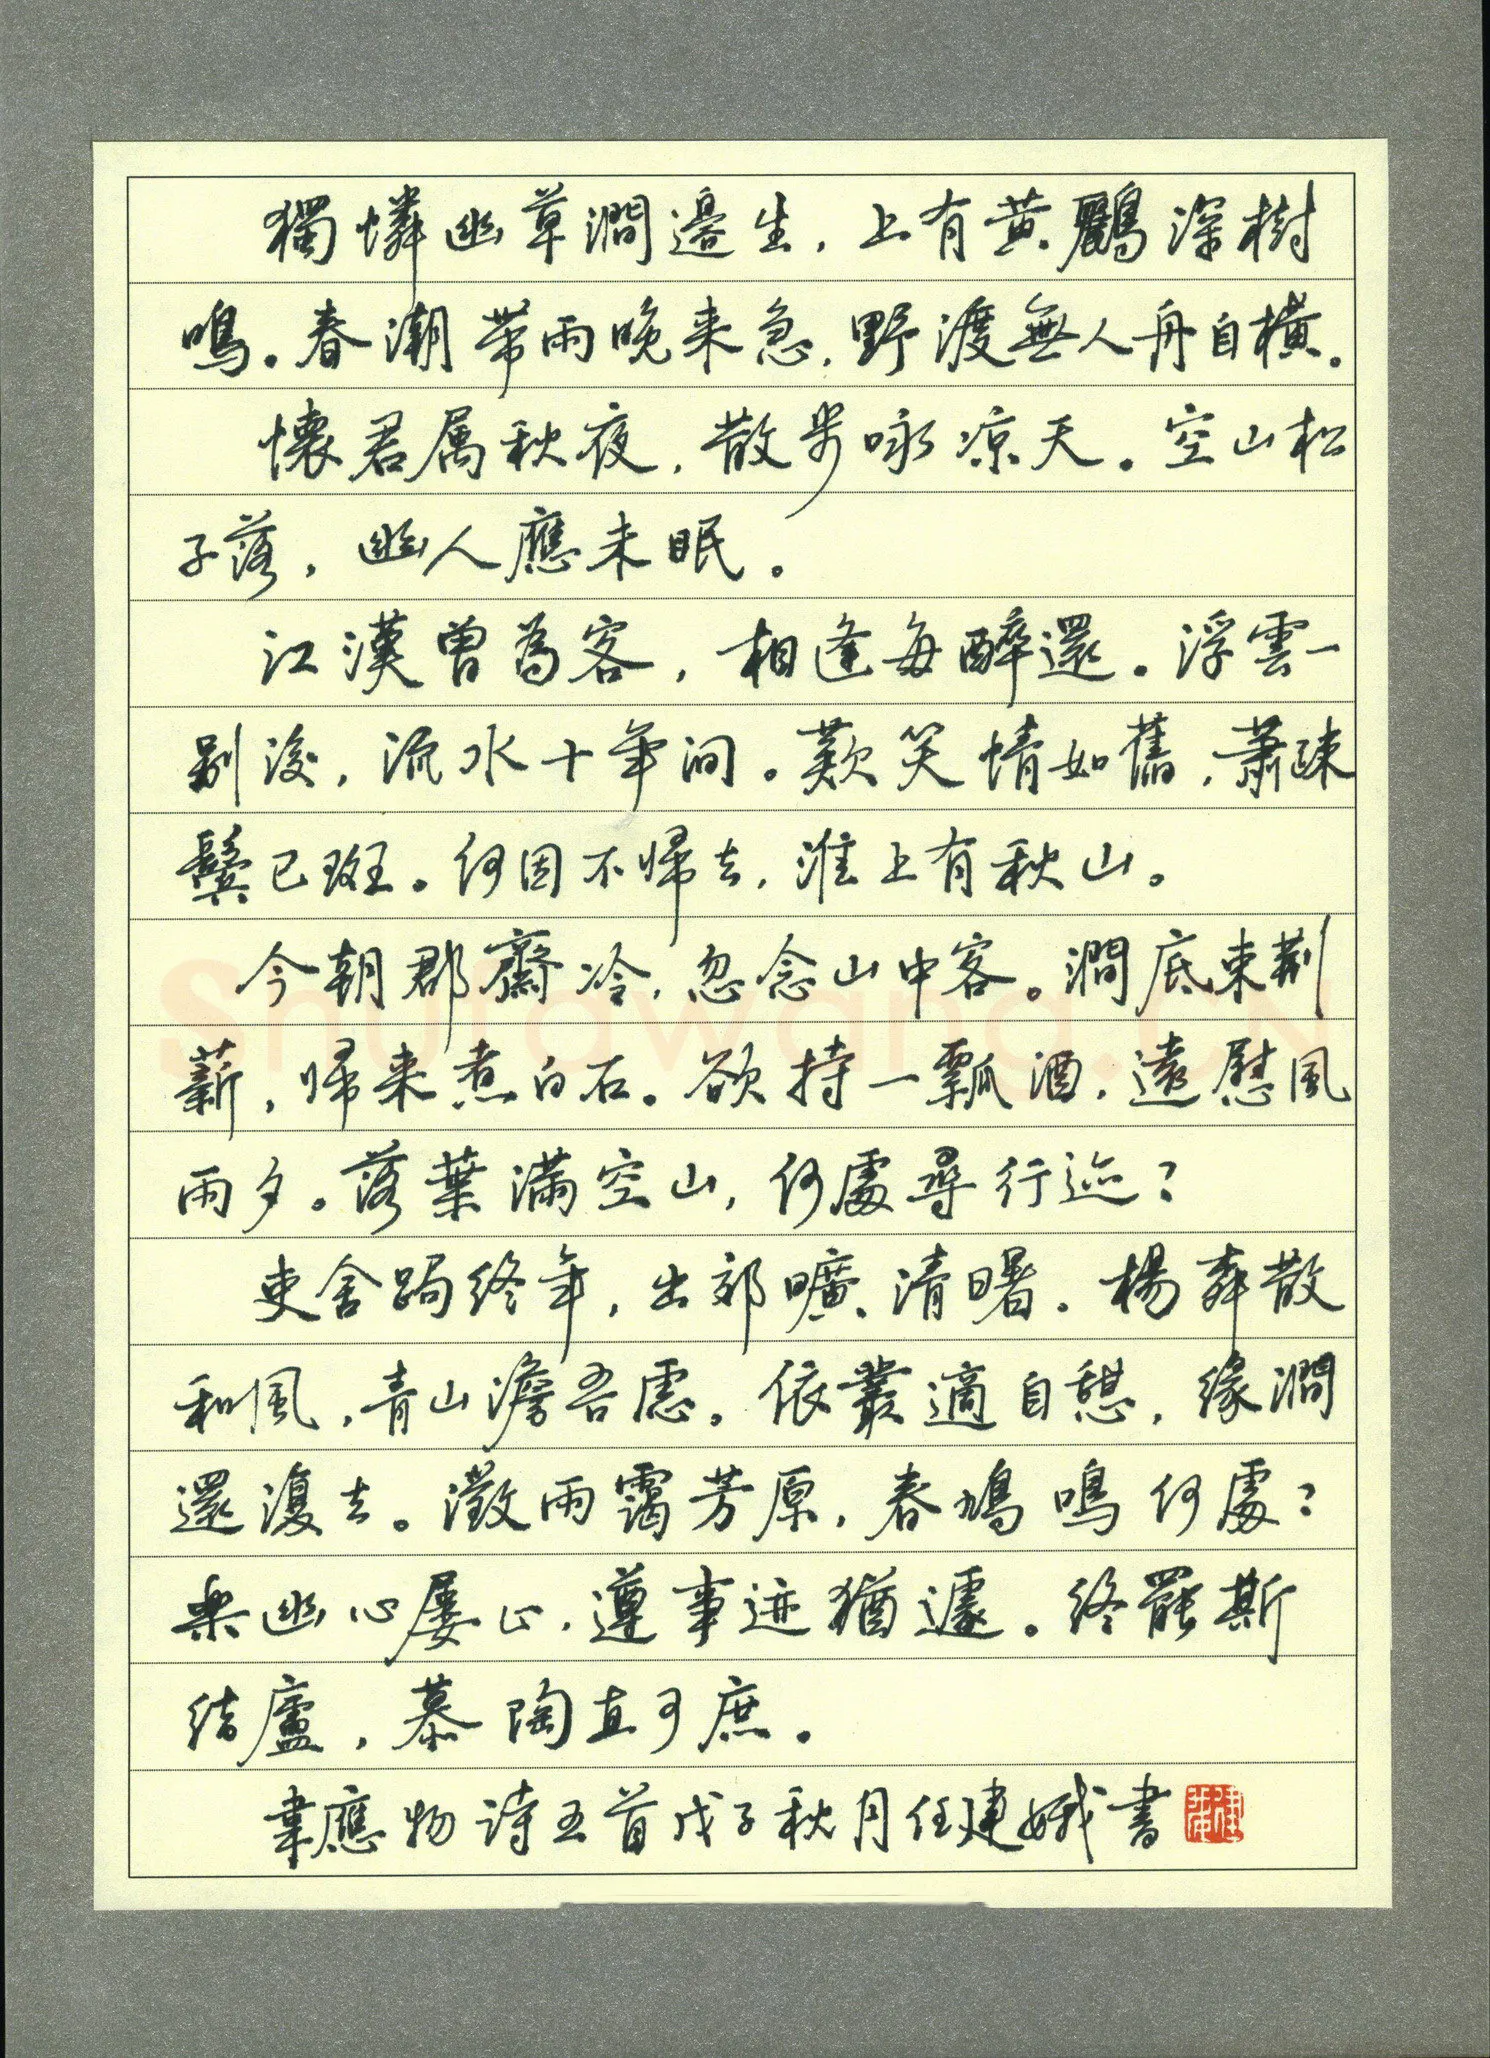 獨憐幽草澗邊生，上有黃鸝深樹
鳴。春潮带雨晚来急，野渡無人舟自横。
懷君属秋夜，散步咏凉天。空山松
子落，幽人應未眠。
江漢曾為客，相逢每醉還。浮雲一
别後，流水十年间。歎笑情如舊，蕭疎
鬓已斑。何因不歸去，淮上有秋山。
今朝郡齋冷，忽念山中客。澗底束荆
薪，歸来煮白石。欲持一瓢酒，遠慰風
雨夕。落葉满空山，何處尋行迹？
吏舍跼终年，出郊曠清曙。楊柳散
和風，青山澹吾慮。依叢適自憩，缘澗
還復去。微雨靄芳原，春鳩鳴何處？
樂幽心屢止，遵事迹猶遽。终罷斯
结廬，慕陶直可庶。
韋應物诗五首戊子秋月任建娥書